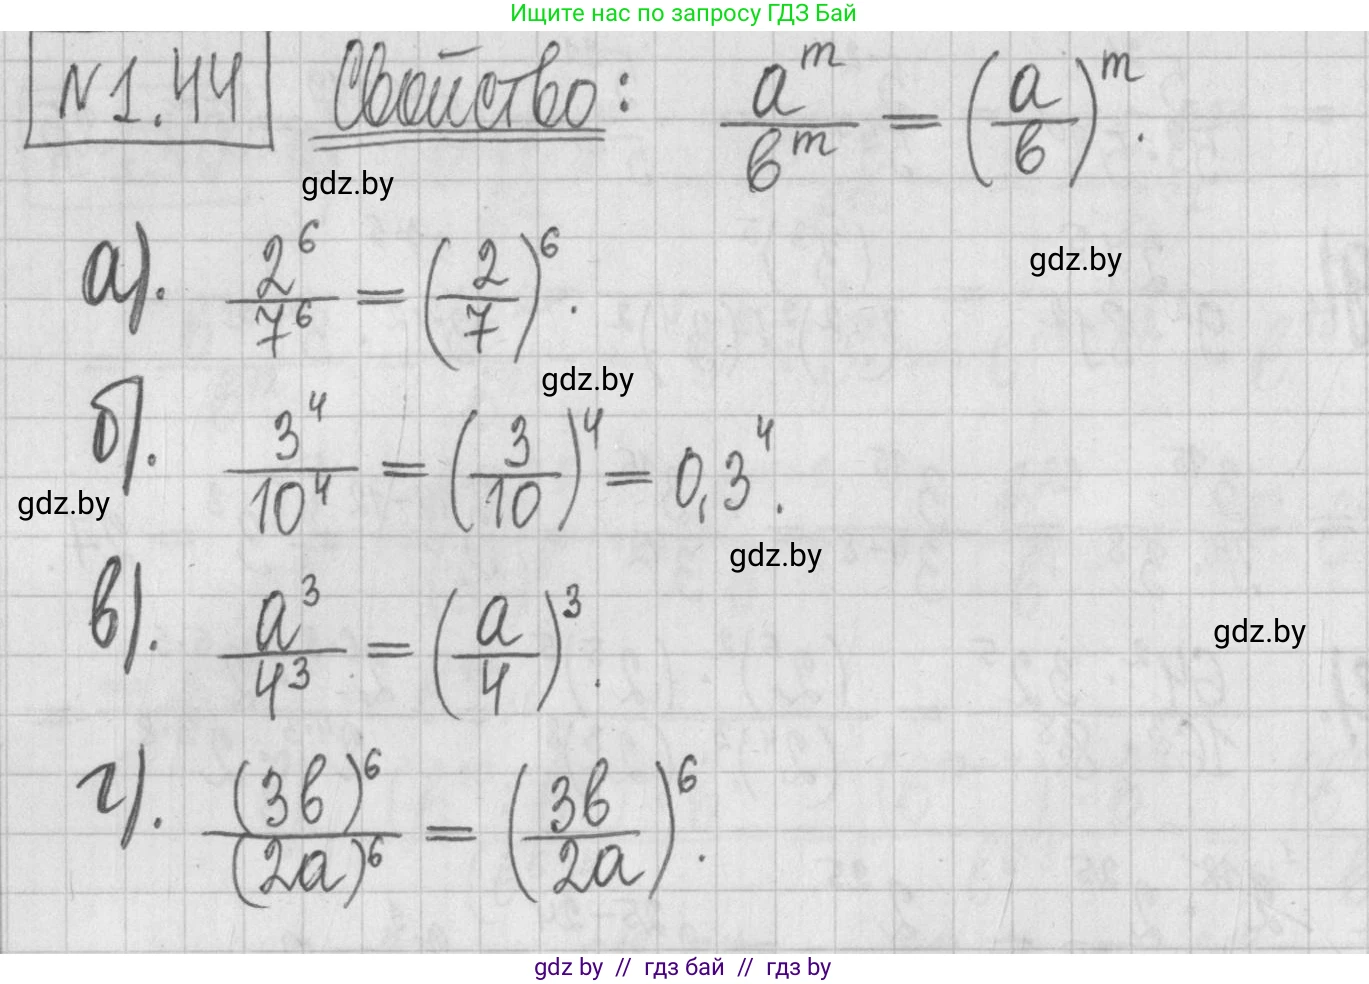 Ищите нас по запросу ГДЗ Бай
№1.44 Свойство: a^m/b^m = (a/b)^m.
gdz.by
gdz.by
а). 2^6/7^6 = (2/7)^6.
gdz.by
б). 3^4/10^4 = (3/10)^4 = 0,3^4.
gdz.by
gdz.by
в). a^3/4^3 = (a/4)^3.
gdz.by
г). (3b)^6/(2a)^6 = (3b/2a)^6.
gdz by // гдз бай // гдз by